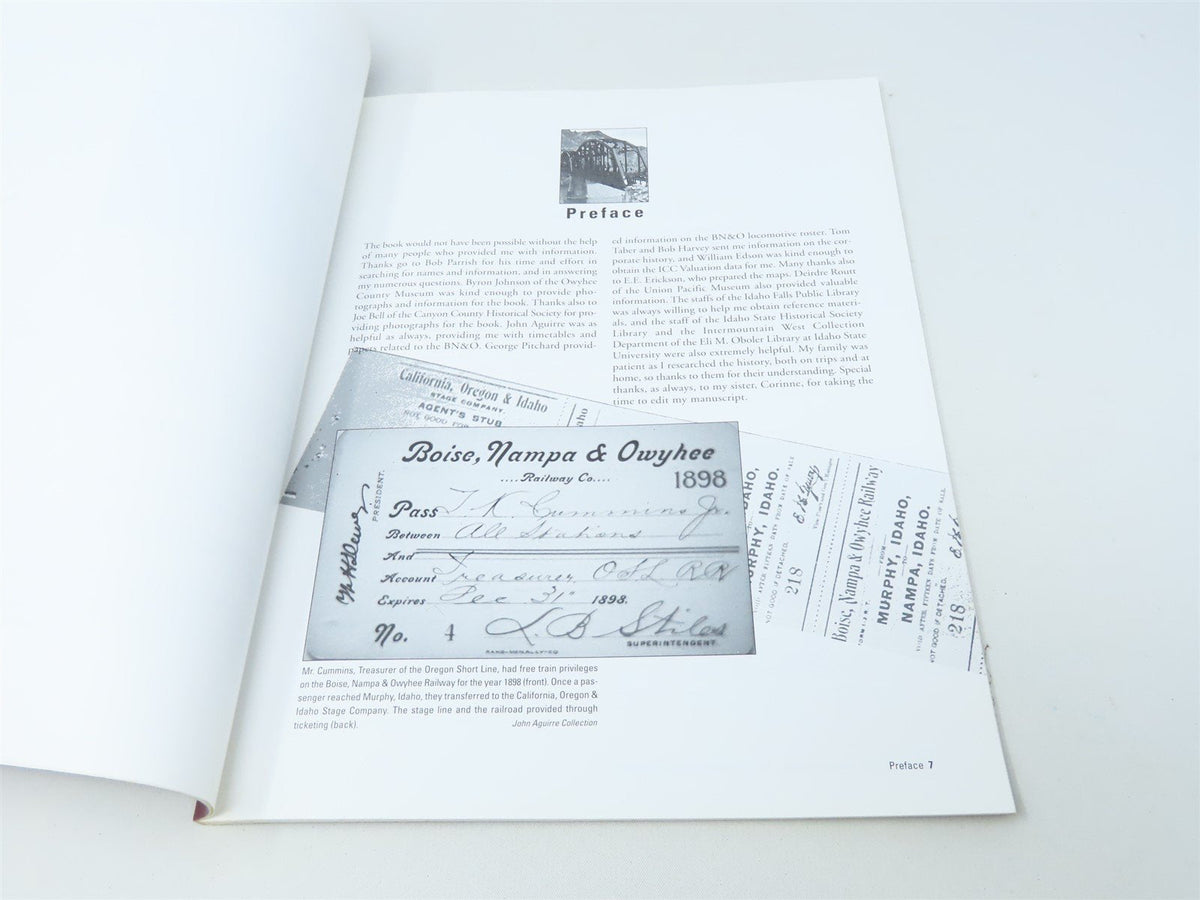 Preface
The book would not have been possible without the help
of many people who provided me with information.
Thanks go to Bob Parrish for his time and effort in
searching for names and information, and in answering
my numerous questions. Byron Johnson of the Owyhee
County Museum was kind enough to provide pho-
tographs and information for the book. Thanks also to
Joe Bell of the Canyon County Historical Society for pro-
viding photographs for the book. John Aguirre was as
helpful as always, providing me with timetables and
papers related to the BN&O. George Pitchard provid-
ed information on the BN&O locomotive roster. Tom
Taber and Bob Harvey sent me information on the cor-
porate history, and William Edson was kind enough to
obtain the ICC Valuation data for me. Many thanks also
to E.E. Erickson, who prepared the maps. Deirdre Routt
of the Union Pacific Museum also provided valuable
information. The staffs of the Idaho Falls Public Library
was always willing to help me obtain reference materi-
als, and the staff of the Idaho State Historical Society
Library and the Intermountain West Collection
Department of the Eli M. Oboler Library at Idaho State
University were also extremely helpful. My family was
patient as I researched the history, both on trips and at
home, so thanks to them for their understanding. Special
thanks, as always, to my sister, Corinne, for taking the
time to edit my manuscript.
California, Oregon & Idaho
STAGE COMPANY.
AGENT'S STUB
NOT GOOD FOR
aho
Boise, Nampa & Owyhee
....Railway Co....
1898
PRESIDENT.
Pass J. K. Cummins Jr.
Between All Stations
And
Account Treasurer, OSL RR
Expires Dec 31" 1898.
No. 4 L B Stiles
SUPERINTENDENT.
RAND-McNALLY-CO
AHO,
RPHY, IDAHO.
OID AFTER FIFTEEN DAYS FROM DATE OF SALE
OOD IF DETACHED.
218
Boise, Nampa & Owyhee Railway
FORM
FROM
MURPHY, IDAHO,
TO
NAMPA, IDAHO,
VOID AFTER FIFTEEN DAYS FROM DATE OF SALE
NOT GOOD IF DETACHED.
218
Mr. Cummins, Treasurer of the Oregon Short Line, had free train privileges
on the Boise, Nampa & Owyhee Railway for the year 1898 (front). Once a pas-
senger reached Murphy, Idaho, they transferred to the California, Oregon &
Idaho Stage Company. The stage line and the railroad provided through
ticketing (back).
John Aguirre Collection
Preface 7